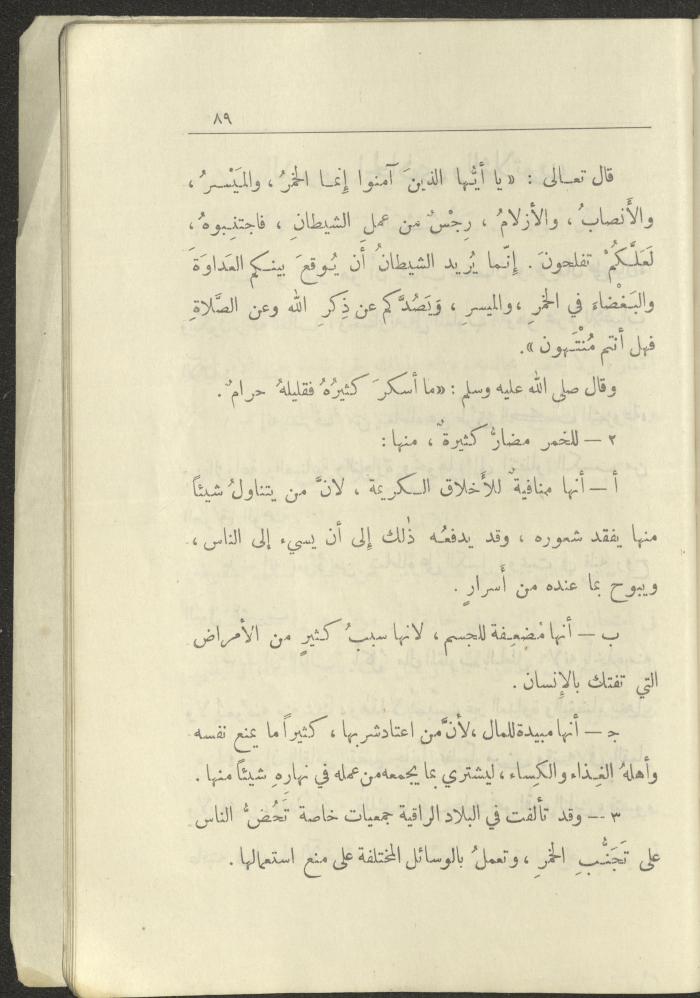 ٨٩
قال تعـالى : «يا أيُّها الذينَ آمنوا إنمـا الخمرُ ، والميَسْـرُ ،
والأَنصابُ ، والأزلامُ ، رِجْسٌ من عملِ الشيطانِ ، فاجتنِـبوهُ ،
لَعَلَّكُمْ تفلحونَ . إنَّما يُريد الشيطانُ أن يُوقعَ بينـكم العَداوَةَ
والبَغْضاءَ في الخمْرِ ، والميسرِ ، وَيَصُدَّكم عن ذِكرِ الله وعن الصَّلاةِ
فهل أنتم مُنْتَهون» .
وقال صلى الله عليه وسلم : «ما أسكرَ كثيرُهُ فقليلهُ حرامٌ .
٢ – للخمر مضارُّ كثيرةٌ ، منها :
أ – أنها منافيةٌ للأَخلاق الـكريمة ، لانَّ من يتناولُ شيئاً
منها يفقد شعوره ، وقد يدفعُـه ذٰلك إلى أن يسيء إلى الناس ،
ويبوح بما عنده من أَسرارٍ .
ب – أنها مُضعِـفة للجسم ، لانها سببُ كثيرٍ من الأمراض
التي تفتك بالإنسان .
جـ – أنها مبيدة للمال ، لأنَّ من اعتاد شربها ، كثيراً ما يمنع نفسه
وأهلهُ الغِـذاء والكِساء ، ليشتري بما يجمعه من عمله في نهارِهِ شيئاً منها .
٣ – وقد تألفت في البلاد الراقية جمعيات خاصة تَحُضُّ الناس
على تَجَنُّبِ الخمْرِ ، وتعملُ بالوسائل المختلفة على منع استعمالها .